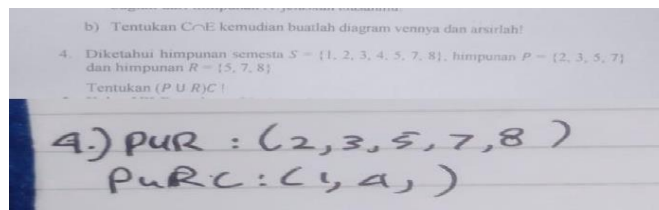 b) Tentukan C∩E kemudian buatlah diagram vennya dan arsirlah!
4. Diketahui himpunan semesta S = {1, 2, 3, 4, 5, 7, 8}, himpunan P = {2, 3, 5, 7}
dan himpunan R = {5, 7, 8}
Tentukan (P U R)C !
4.) PUR : (2,3,5,7,8 )
PURC : (1,4, )